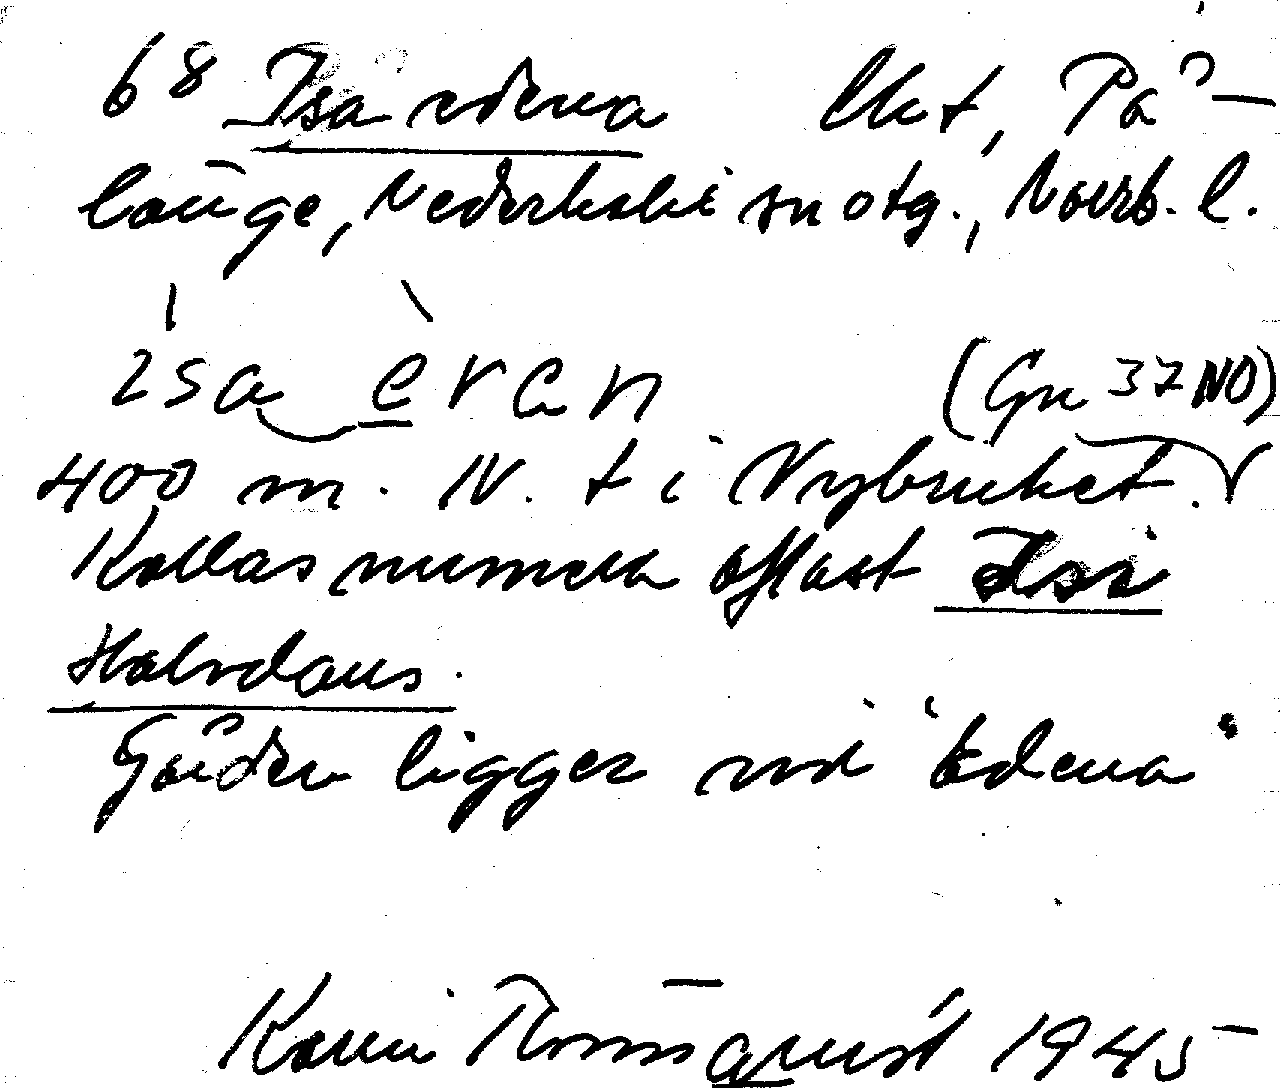 68 Isaedena Ukt, På-
länge, Nederkalix snotg., Norrb. l.
 isa eran (Gn 37 NO)
400 m. NV. t i Nybruket.
Kallas numera oftast Isi
Halvdans.
Gården ligger vid "Edena"
Karin Tornqvist 1945